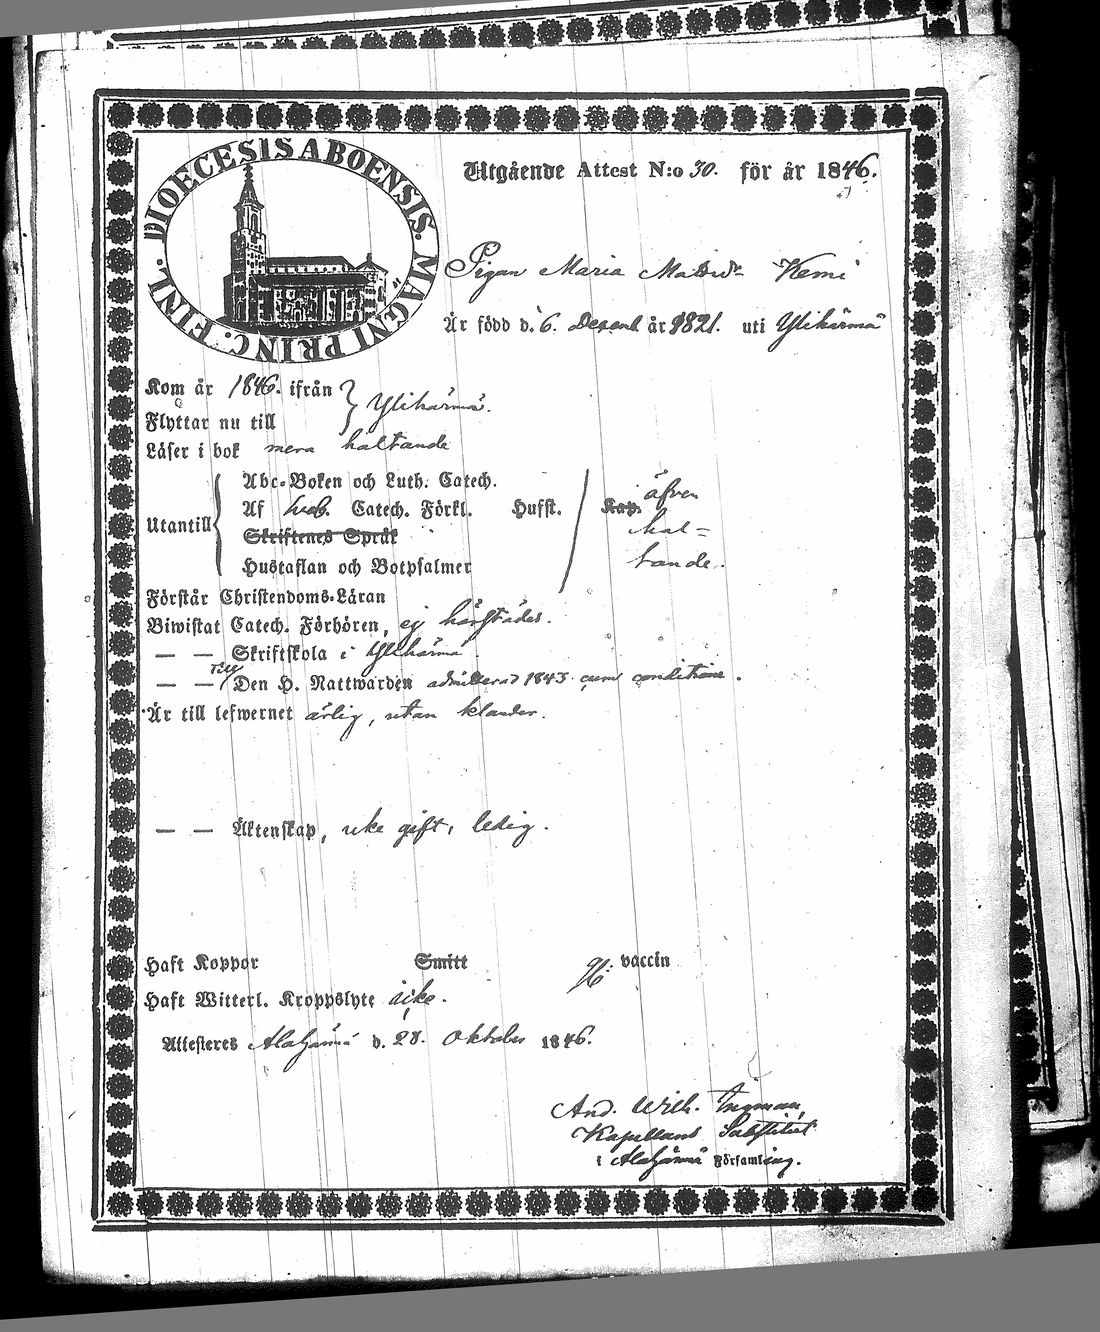 DIOECESIS ABOENSIS. MAGNI PRINC. FINL.
Utgående Attest N:o 30. för år 1846.
Pigan Maria Kemi
Är född d. 6. Decemb år 1821. uti Ylihärmä
Kom år 1846. ifrån
Flyttar nu till
Ylihärmä.
Läser i bok mera haltande
Utantill
Abc-Boken och Luth. Catech.
Af Catech. Förkl. Husst. Kap.
Skriftenes Språk
Hustaflan och Botpsalmer
äfven
hal=
tande.
Förstår Christendoms-Läran
Biwistat Catech. Förhören, ej härstädes.
— — Skriftskola i Ylihärmä.
— — Till Den H. Nattwarden admitterad 1843 cum conditione.
Är till lefwernet ärlig, utan klander.
— — Äktenskap, icke gift, ledig.
Haft Koppor Smitt vaccin
Haft Witterl. Kroppslyte icke.
Attesteres Alahärmä d. 28. Oktober 1846.
And. Wilh. Ingman,
Kapellans Substitut
i Alahärmä Församling.